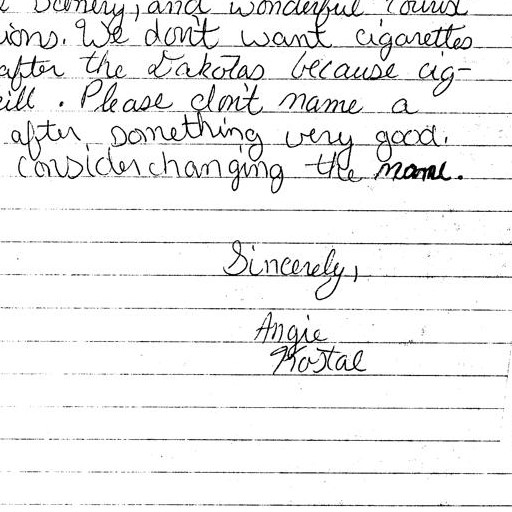 scenery, and wonderful tourist
ions. We don't want cigarettes
after the Dakotas because cig-
ill. Please don't name a
after something very good.
consider changing the name.
Sincerely,
Angie
Kostal